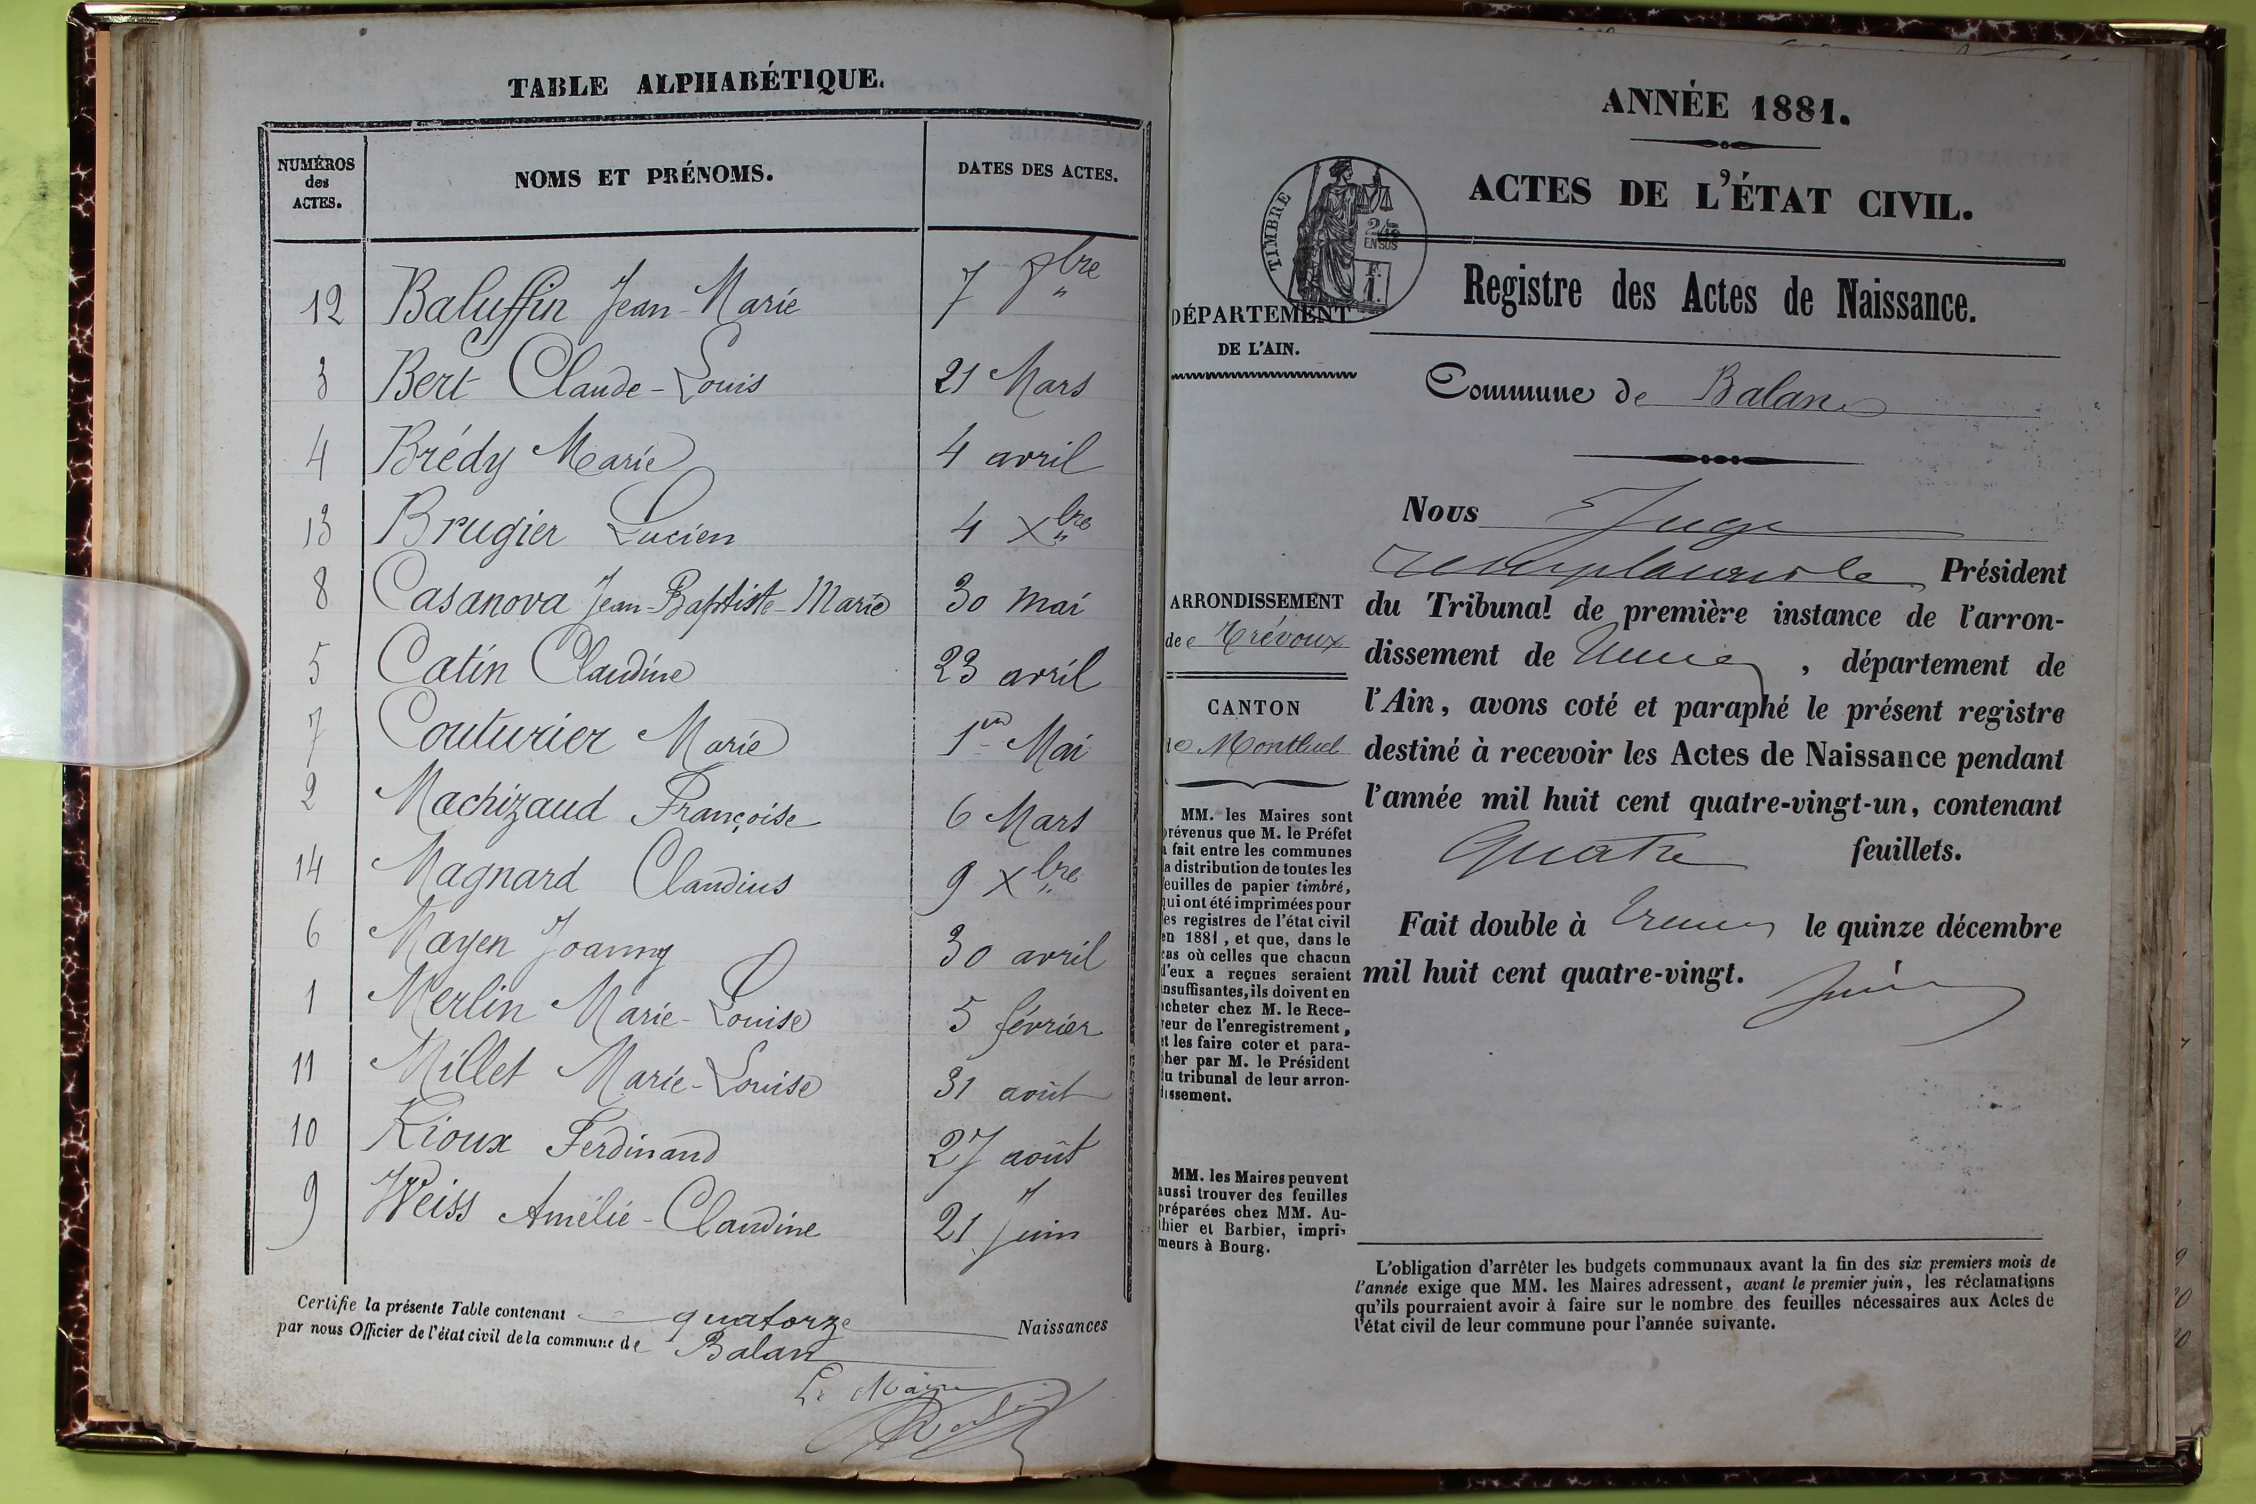 TABLE ALPHABÉTIQUE.
NUMÉROS des ACTES. NOMS ET PRÉNOMS. DATES DES ACTES.
12 Baluffin Jean-Marie 7
3 Bert Claude-Louis 21 Mars
4 Brédy Marie 4 avril
13 Brugier Lucien 4 Xbre
8 Casanova Jean-Baptiste-Marie 30 mai
5 Catin Claudine 23 avril
7 Couturier Marie 1er Mai
2 Machizaud Françoise 6 Mars
14 Magnard Claudius 9 Xbre
6 Mayen Joanny 30 avril
1 Merlin Marie-Louise 5 février
11 Millet Marie-Louise 31 août
10 Rioux Ferdinand 27 août
9 Weiss Amélie-Claudine 21 Juin
Certifie la présente Table contenant quatorze Naissances
par nous Officier de l'état civil de la commune de Balan
Le Maire
ANNÉE 1881.
ACTES DE L'ÉTAT CIVIL.
TIMBRE
EN SUS
1 F.
Registre des Actes de Naissance.
DÉPARTEMENT
DE L'AIN.
Commune de Balan
ARRONDISSEMENT
de Trévoux
CANTON
de Montluel
MM. les Maires sont
prévenus que M. le Préfet
a fait entre les communes
la distribution de toutes les
feuilles de papier timbré,
qui ont été imprimées pour
les registres de l'état civil
en 1881, et que, dans le
cas où celles que chacun
d'eux a reçues seraient
insuffisantes, ils doivent en
acheter chez M. le Rece-
veur de l'enregistrement,
et les faire coter et para-
pher par M. le Président
du tribunal de leur arron-
dissement.
MM. les Maires peuvent
aussi trouver des feuilles
préparées chez MM. Au-
thier et Barbier, impri-
meurs à Bourg.
Nous Juge
remplaçant le Président
du Tribunal de première instance de l'arron-
dissement de Trévoux, département de
l'Ain, avons coté et paraphé le présent registre
destiné à recevoir les Actes de Naissance pendant
l'année mil huit cent quatre-vingt-un, contenant
Quatre feuillets.
Fait double à Trévoux le quinze décembre
mil huit cent quatre-vingt.
L'obligation d'arrêter les budgets communaux avant la fin des six premiers mois de
l'année exige que MM. les Maires adressent, avant le premier juin, les réclamations
qu'ils pourraient avoir à faire sur le nombre des feuilles nécessaires aux Actes de
l'état civil de leur commune pour l'année suivante.